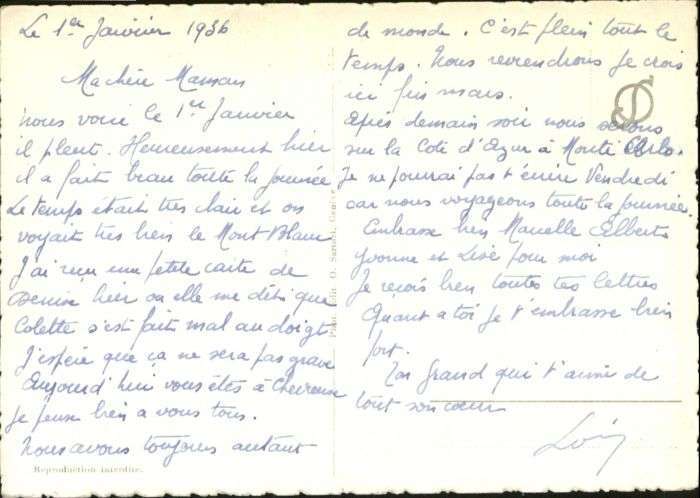 Le 1er Janvier 1936
Ma chère Maman
nous voici le 1er Janvier
il pleut. Heureusement hier
il a fait beau toute la journée
Le temps était très clair et on
voyait très bien le Mont Blanc
J'ai reçu une petite carte de
Denise hier ou elle me dit que
Colette s'est fait mal au doigt
J'espère que ça ne sera pas grave
Aujourd'hui vous êtes à Chevreuse
Je pense bien a vous tous.
Nous avons toujours autant
Reproduction interdite.
de monde. C'est plein tout le
temps. Nous reviendrons je crois
ici fin mars.
Après demain soir nous serons
sur la Cote d'Azur à Monte Carlo.
Je ne pourrai pas t'écrire Vendredi
car nous voyageons toute la journée.
Embrasse bien Marcelle Albert
Yvonne et Lise pour moi
Je reçois bien toutes tes lettres
Quant a toi je t'embrasse bien
fort.
Ton Grand qui t'aime de
tout son coeur